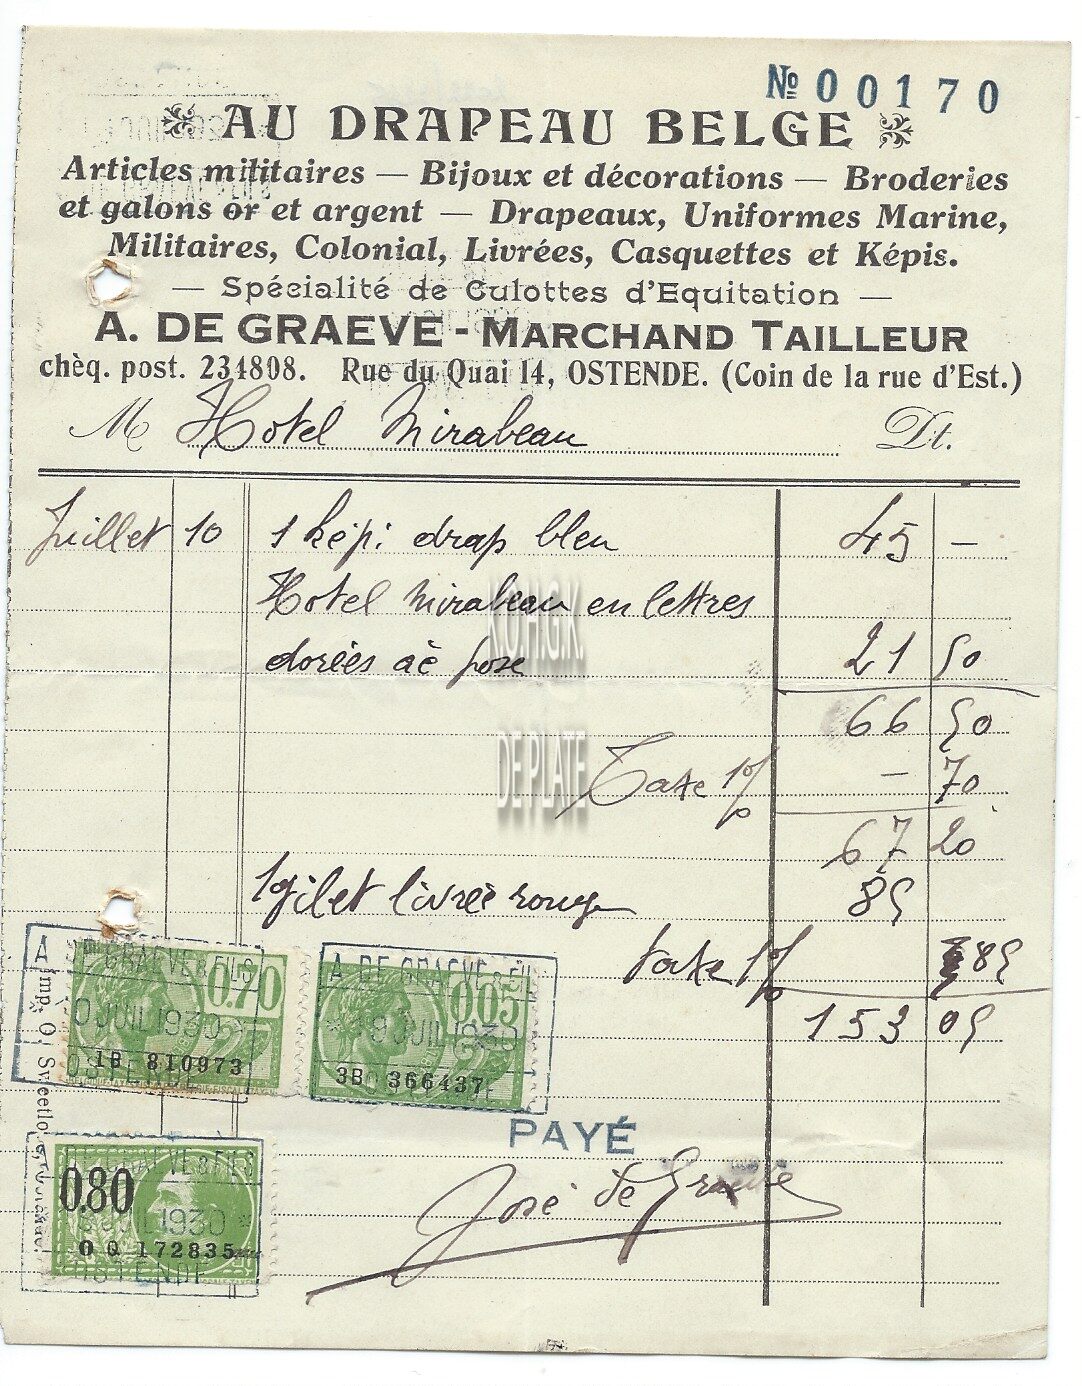 Nº 00170
AU DRAPEAU BELGE
Articles militaires — Bijoux et décorations — Broderies
et galons or et argent — Drapeaux, Uniformes Marine,
Militaires, Colonial, Livrées, Casquettes et Képis.
— Spécialité de Culottes d'Equitation —
A. DE GRAEVE - MARCHAND TAILLEUR
chèq. post. 234808. Rue du Quai 14, OSTENDE. (Coin de la rue d'Est.)
M Hotel Mirabeau Dt.
Juillet 10 1 képi drap bleu 45 —
Hotel Mirabeau en lettres
dorées aè pose 21 50
66 50
Taxe 1% — 70
67 20
1 gilet livrée rouge 85
taxe 1% 85
153 05
KOH.G.K.
DE PLATE
A. DE GRAEVE & FILS
0.70
JUIL 1930
1B 810973
OSTENDE
A. DE GRAEVE & FIL
0.05
9 JUIL 1930
3B 366437
PAYÉ
José de Graeve
GRAEVE & FILS
0.80
JUIL 1930
O Q 172835
OSTENDE
Imp. O.